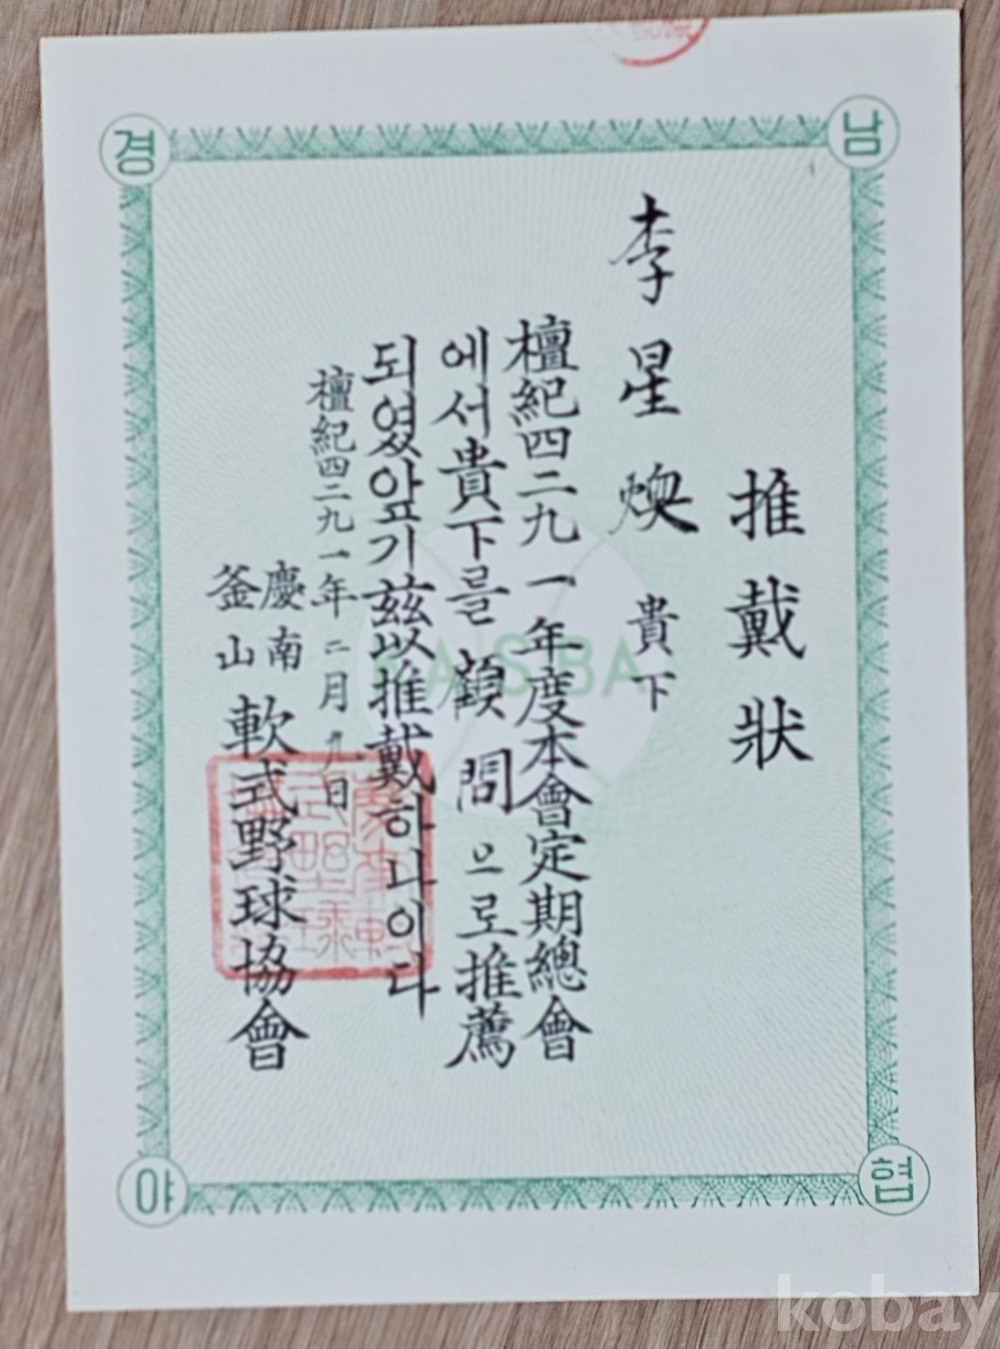 推戴狀
李星煥 貴下
檀紀四二九一年度本會定期總會
에서貴下를 顧問 으로推薦
되였압기玆以推戴하나이다
檀紀四二九一年二月 九日
慶南
釜山
軟式野球協會
경
남
야
협
BA
kobay